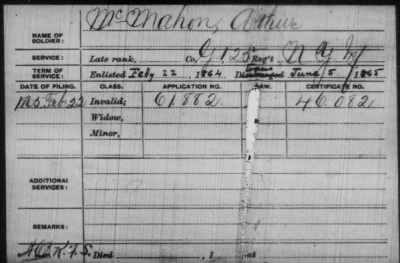 NAME OF SOLDIER: McMahon, Arthur
SERVICE: Late rank, Co. G 125 Reg't N Y Inf
TERM OF SERVICE: Enlisted Feby 22, 1864 Discharged June 5, 1865
DATE OF FILING. CLASS. APPLICATION NO. LAW. CERTIFICATE NO.
Feb. 22 Invalid, 61.882 46.082
Widow,
Minor,
ADDITIONAL SERVICES:
REMARKS:
Died , 1 , at